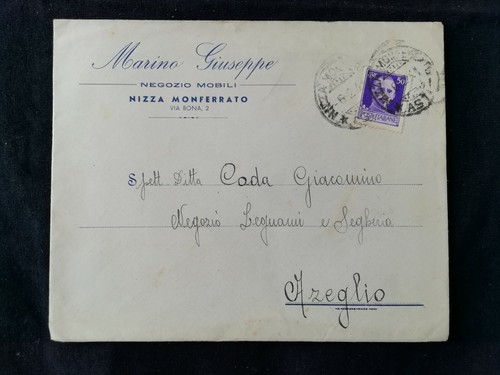 Marino Giuseppe
NEGOZIO MOBILI
NIZZA MONFERRATO
VIA BONA, 2
50
Spett. Ditta Coda Giacomino
Negozio Legnami e Segheria
Azeglio